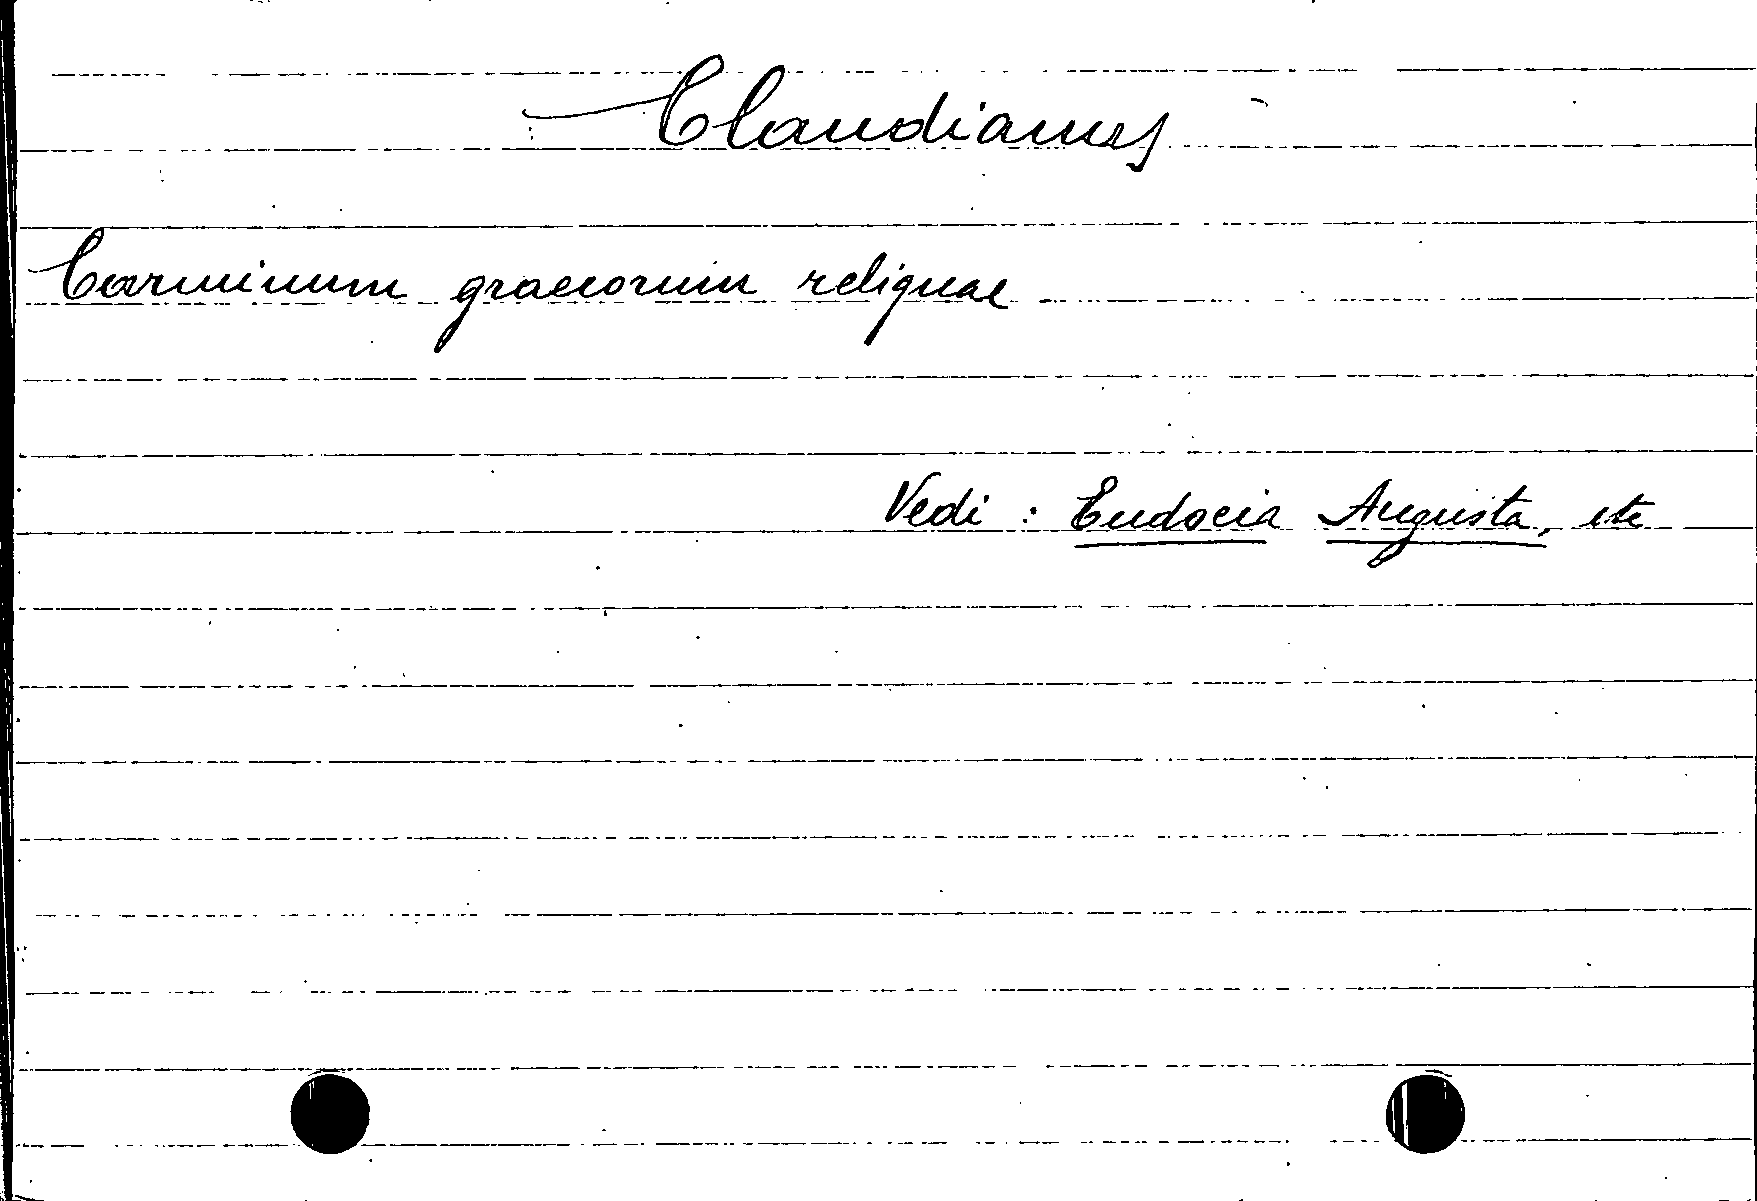 Claudianus
Carminum graecorum reliquae
Vedi : Eudocia Augusta, etc